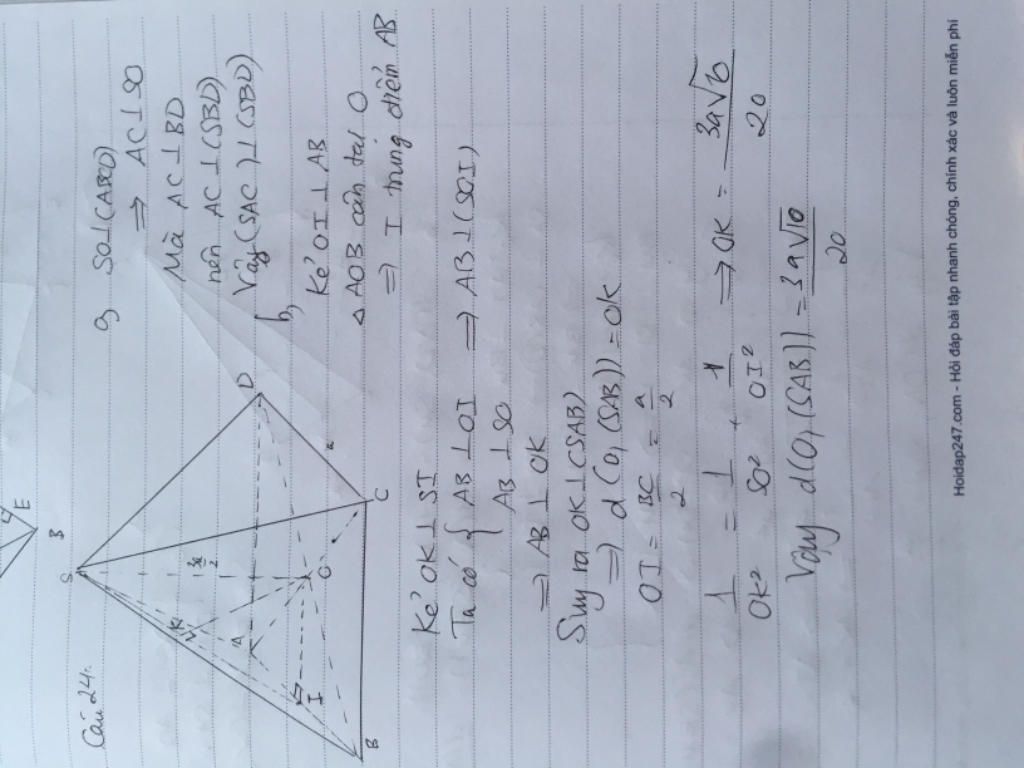 Câu 24:
S
3a
2
K
A
O
I
B
C
D
B
E
a, SO⊥(ABCD)
⇒ AC⊥SO
Mà AC⊥BD
nên AC⊥(SBD)
Vậy (SAC)⊥(SBD)
b,
Kẻ OI⊥AB
△AOB cân tại O
⇒ I trung điểm AB
Kẻ OK⊥SI
Ta có { AB⊥OI ⇒ AB⊥(SOI)
AB⊥SO
⇒ AB⊥OK
Suy ra OK⊥(SAB)
⇒ d(O,(SAB))=OK
OI = BC/2 = a/2
1/OK² = 1/SO² + 1/OI² ⇒ OK = 3a√10/20
Vậy d(O,(SAB)) = 3a√10/20
Hoidap247.com - Hỏi đáp bài tập nhanh chóng, chính xác và luôn miễn phí